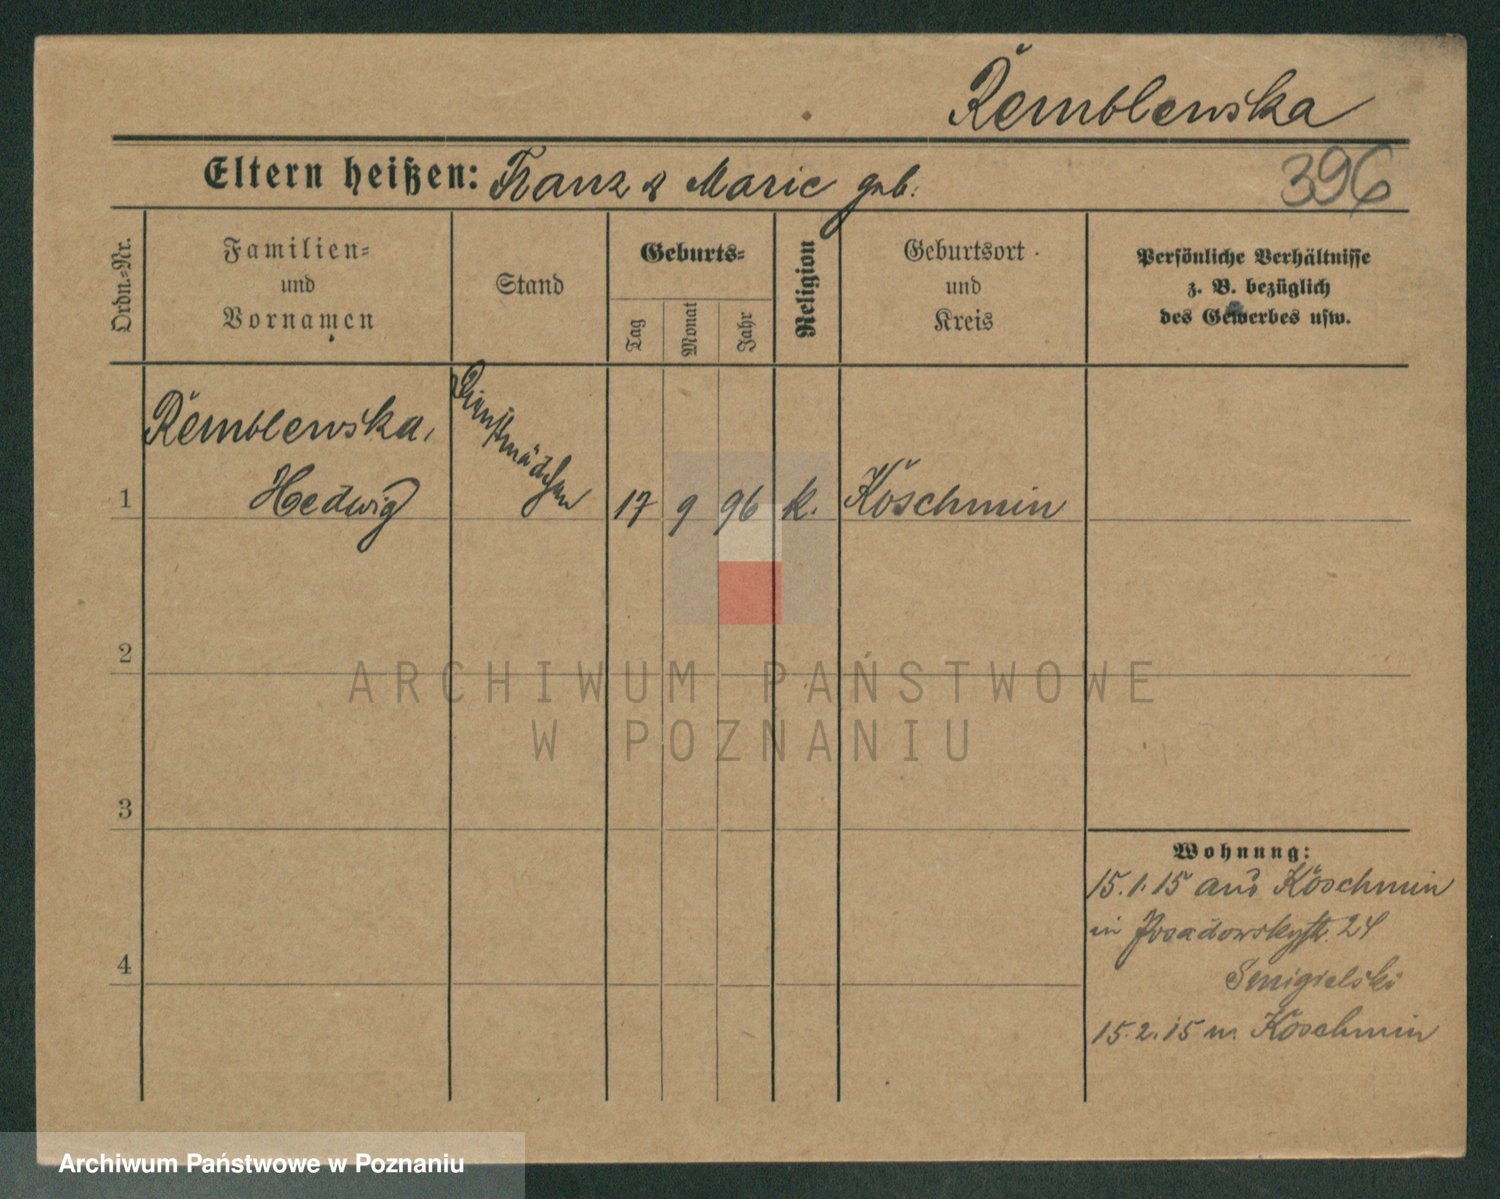 Remblewska
Eltern heißen: Franz & Marie geb.
396
Ordn.-Nr.
Familien-
und
Vornamen
Stand
Geburts-
Tag
Monat
Jahr
Religion
Geburtsort
und
Kreis
Persönliche Verhältnisse
z. B. bezüglich
des Gewerbes usw.
1
Remblewska,
Hedwig
Dienstmädchen
17
9
96
k.
Koschmin
2
3
4
Wohnung:
15.1.15 aus Koschmin
in Posadowskystr. 24
Smigielski
15.2.15 n. Koschmin
ARCHIWUM PAŃSTWOWE
W POZNANIU
Archiwum Państwowe w Poznaniu